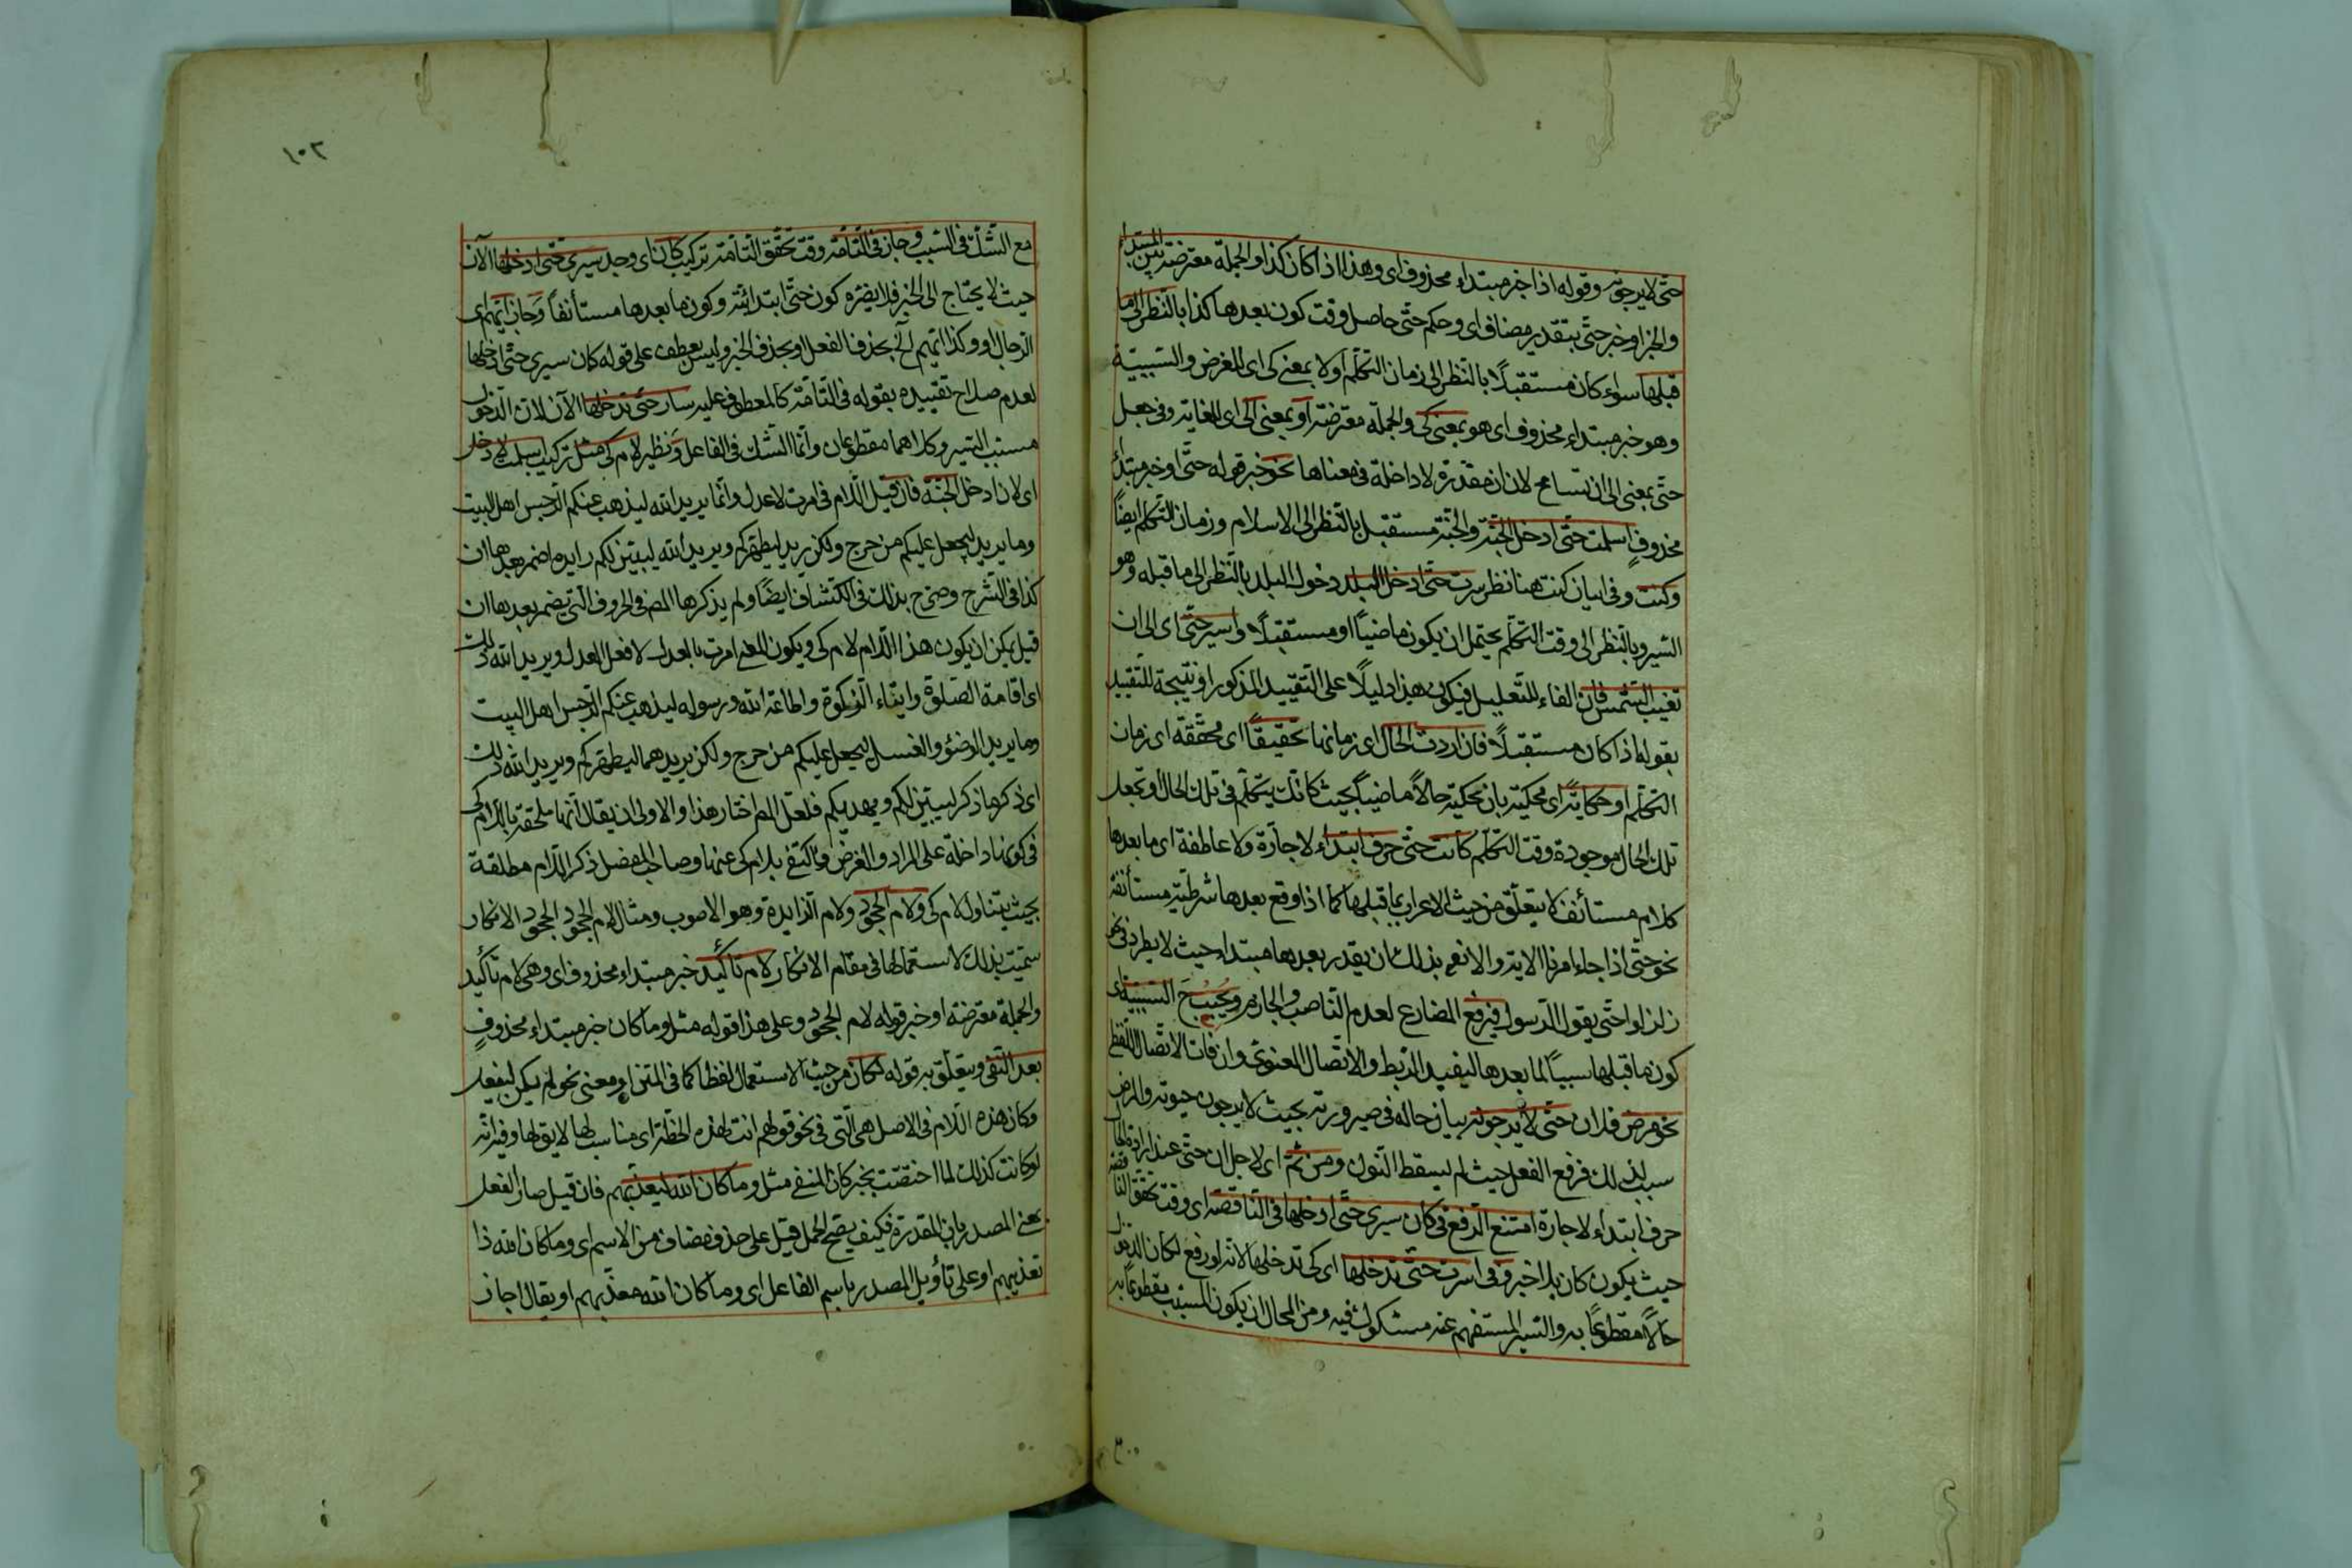 حتى لا يرجونه وقوله اذا خبر مبتداء محذوف اى وهذا اذا كان كذا والجملة معترضة بين المبتداء
والخبر او خبر حتى بتقدير مضاف اى وحكم حتى حاصل وقت كون بعدها كذا بالنظر الى ما
قبلها سواء كان مستقبلًا بالنظر الى زمان التكلم اولا بمعنى كى اى للغرض والسببية
وهو خبر مبتداء محذوف اى هو بمعنى كى والجملة معترضة او بمعنى الى اى للغاية وفى جعل
حتى بمعنى الى ان تسامح لان ان مقدرة لا داخلة فى معناها نحو خبر قوله حتى او خبر مبتدأ
محذوف اسلمت حتى ادخل الجنة والجنة مستقبل بالنظر الى الاسلام وزمان التكلم ايضًا
وكنت وفى ايان كنت هنا نظر سرت حتى ادخل البلد دخول البلد بالنظر الى ما قبله وهو
السير وبالنظر الى وقت التكلم يحتمل ان يكون ماضيًا او مستقبلًا واسير حتى اى الى ان
تغيب الشمس فان الفاء للتعليل فيكون هذا دليلًا على التقييد المذكور او نتيجة للتقييد
بقوله اذا كان مستقبلًا فان اردت الحال اى زمانها تحقيقًا اى محققة اى زمان
التكلم او حكاية اى محكية بان تحكيه حالًا ماضيًا بحيث كانك يتكلم فى تلك الحال او تجعل
تلك الحال موجودة وقت التكلم كانت حتى حرف ابتداء لا جارة ولا عاطفة اى ما بعدها
كلام مستأنف لا يتعلق من حيث الاعراب بما قبلها كما اذا وقع بعدها شرطية مستأنفة
نحو حتى اذا جاء امرنا الاية والا نعم بذلك ان يقدر بعدها مبتداء حيث لا يطرد فى نحو
زلزلوا حتى يقول الرسول فيرفع المضارع لعدم الناصب والجازم ويجب السببية اى
كون ما قبلها سببًا لما بعدها ليفيد الربط والاتصال المعنوى وان فات الاتصال اللفظى
نحو مرض فلان حتى لا يرجونه بيان حاله فى صيرورته بحيث لا يرجون حيوته والمرض
سبب لذلك فرفع الفعل حيث لم يسقط النون ومن ثم اى لاجل ان حتى عند ارادة الحال
حرف ابتداء لا جارة امتنع الرفع فى كان سيرى حتى ادخلها فى الناقصة اى وقت تحقق الناقصة
حيث يكون كان بلا خبر وفى اسرت حتى تدخلها اى كى تدخلها لانه لو رفع لكان الدخول
حالًا مقطوعًا به والسير المستفهم عنه مشكوك فيه ومن المحال ان يكون المسبب مقطوعًا به
١٠٢
مع الشك فى السبب وجاز فى التامة وقت تحقق التامة تركيب كان اى وجد سيرى حتى ادخلها الآن
حيث لا يحتاج الى الخبر فلا يضره كون حتى ابتدائية وكون ما بعدها مستأنفًا وجاز ايهم اى
الرجال او وكذا ايهم الخ بحذف الفعل او بحذف الخبر وليس بعطف على قوله كان سيرى حتى ادخلها
لعدم صلاح تقييده بقوله فى التامة كالمعطوف عليه سار حتى تدخلها الآن لان الدخول
مسبب السير وكلاهما مقطوعان وانما الشك فى الفاعل ونظير لام كى مثل تركيب اسلمت لادخل
اى لان ادخل الجنة فان قيل اللام فى امرت لاعدل وانما يريد الله ليذهب عنكم الرجس اهل البيت
وما يريد ليجعل عليكم من حرج ولكن يريد ليطهركم ويريد الله ليبين لكم زايدة اضمر بعدها ان
كذا فى الشرح وصرح بذلك فى الكشاف ايضًا ولم يذكرها المص فى الحروف التى يضمر بعدها ان
قيل يمكن ان يكون هذا اللام لام كى ويكون المعنى امرت بالعدل لافعل العدل ويريد الله ذلك
اى اقامة الصلوة وايتاء الزكوة واطاعة الله ورسوله ليذهب عنكم الرجس اهل البيت
وما يريد الوضوء والغسل ليجعل عليكم من حرج ولكن يريدهما ليطهركم ويريد الله ذلك
اى ذكر ما ذكر ليبين لكم ويهديكم فلعل المص اختار هذا والاولى ان يقال انها ملحقة باللام كى
فى كونها داخلة على المراد والغرض واكتفى بلام كى عنها وصاحب المفصل ذكر اللام مطلقة
بحيث يتناول لام كى ولام الجحود ولام الزايدة وهو الاصوب ومثال لام الجحود الجحود الانكار
سميت بذلك لاستعمالها فى مقام الانكار لام تأكيد خبر مبتداء محذوف اى وهى لام تأكيد
والجملة معترضة او خبر قوله لام الجحود وعلى هذا قوله مثل وما كان خبر مبتداء محذوف
بعد النفى ويتعلق به قوله لكان من حيث الاستعمال لفظا كما فى المتن او معنى نحو لم يكن ليفعل
وكان هذه اللام فى الاصل هى التى فى نحو قولهم انت لهذه الخطة اى مناسب لها لايق لها وفيه انه
لو كانت كذلك لما اختصت بخبر كان المنفى مثل وما كان الله ليعذبهم فان قيل صار الفعل
بمعنى المصدر بان المقدرة فكيف يصح الحمل قيل على حذف مضاف من الاسم اى وما كان الله ذا
تعذيبهم او على تأويل المصدر باسم الفاعل اى وما كان الله معذبهم او يقال اجاز